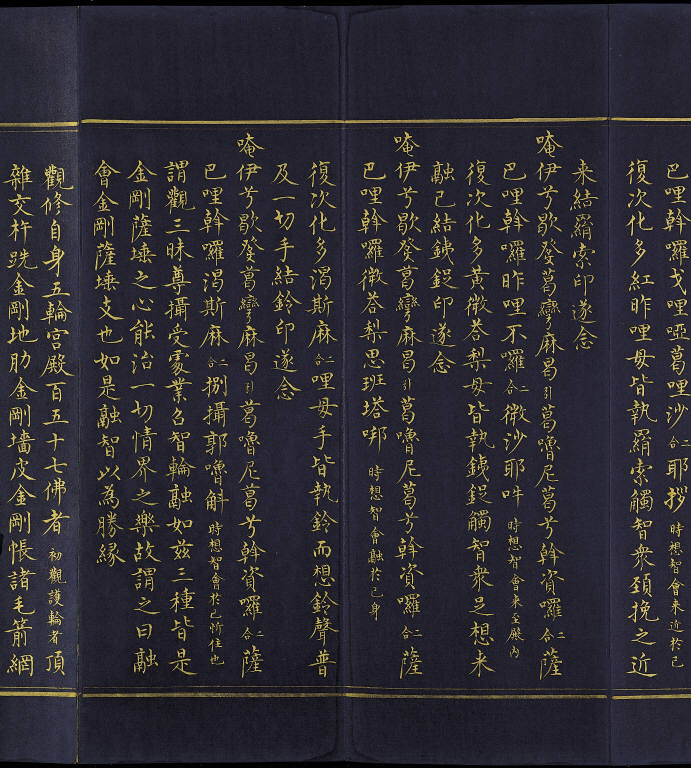 巴哩斡囉戈哩啞葛哩沙二合耶拶時想智會来近於己
復次化多紅昨哩母皆執羂索觸智衆頚挽之近
来結羂索印遂念
唵伊兮歇發葛彎麻昌引葛嚕尼葛兮斡資囉二合薩
巴哩斡囉昨哩不囉二合微沙耶吽時想智會来至殿內
復次化多黃微荅梨母皆執銕鋜觸智衆足想来
融己結銕鋜印遂念
唵伊兮歇發葛彎麻昌引葛嚕尼葛兮斡資囉二合薩
巴哩斡囉微荅梨思班塔㖿時想智會融於己身
復次化多渴斯麻二合哩母手皆執鈴而想鈴聲普
及一切手結鈴印遂念
唵伊兮歇發葛彎麻昌引葛嚕尼葛兮斡資囉二合薩
巴哩斡囉渴斯麻二合捌攝郭嚕斛時想智會於己忻住也
謂觀三昧尊攝受䝉業召智輪融如兹三種皆是
金剛薩埵之心能治一切情界之樂故謂之曰融
會金剛薩埵支也如是融智以為勝緣
觀修自身五輪宫殿百五十七佛者初觀護輪者頂
雜交杵䟦金剛地肋金剛墻皮金剛帳諸毛箭網